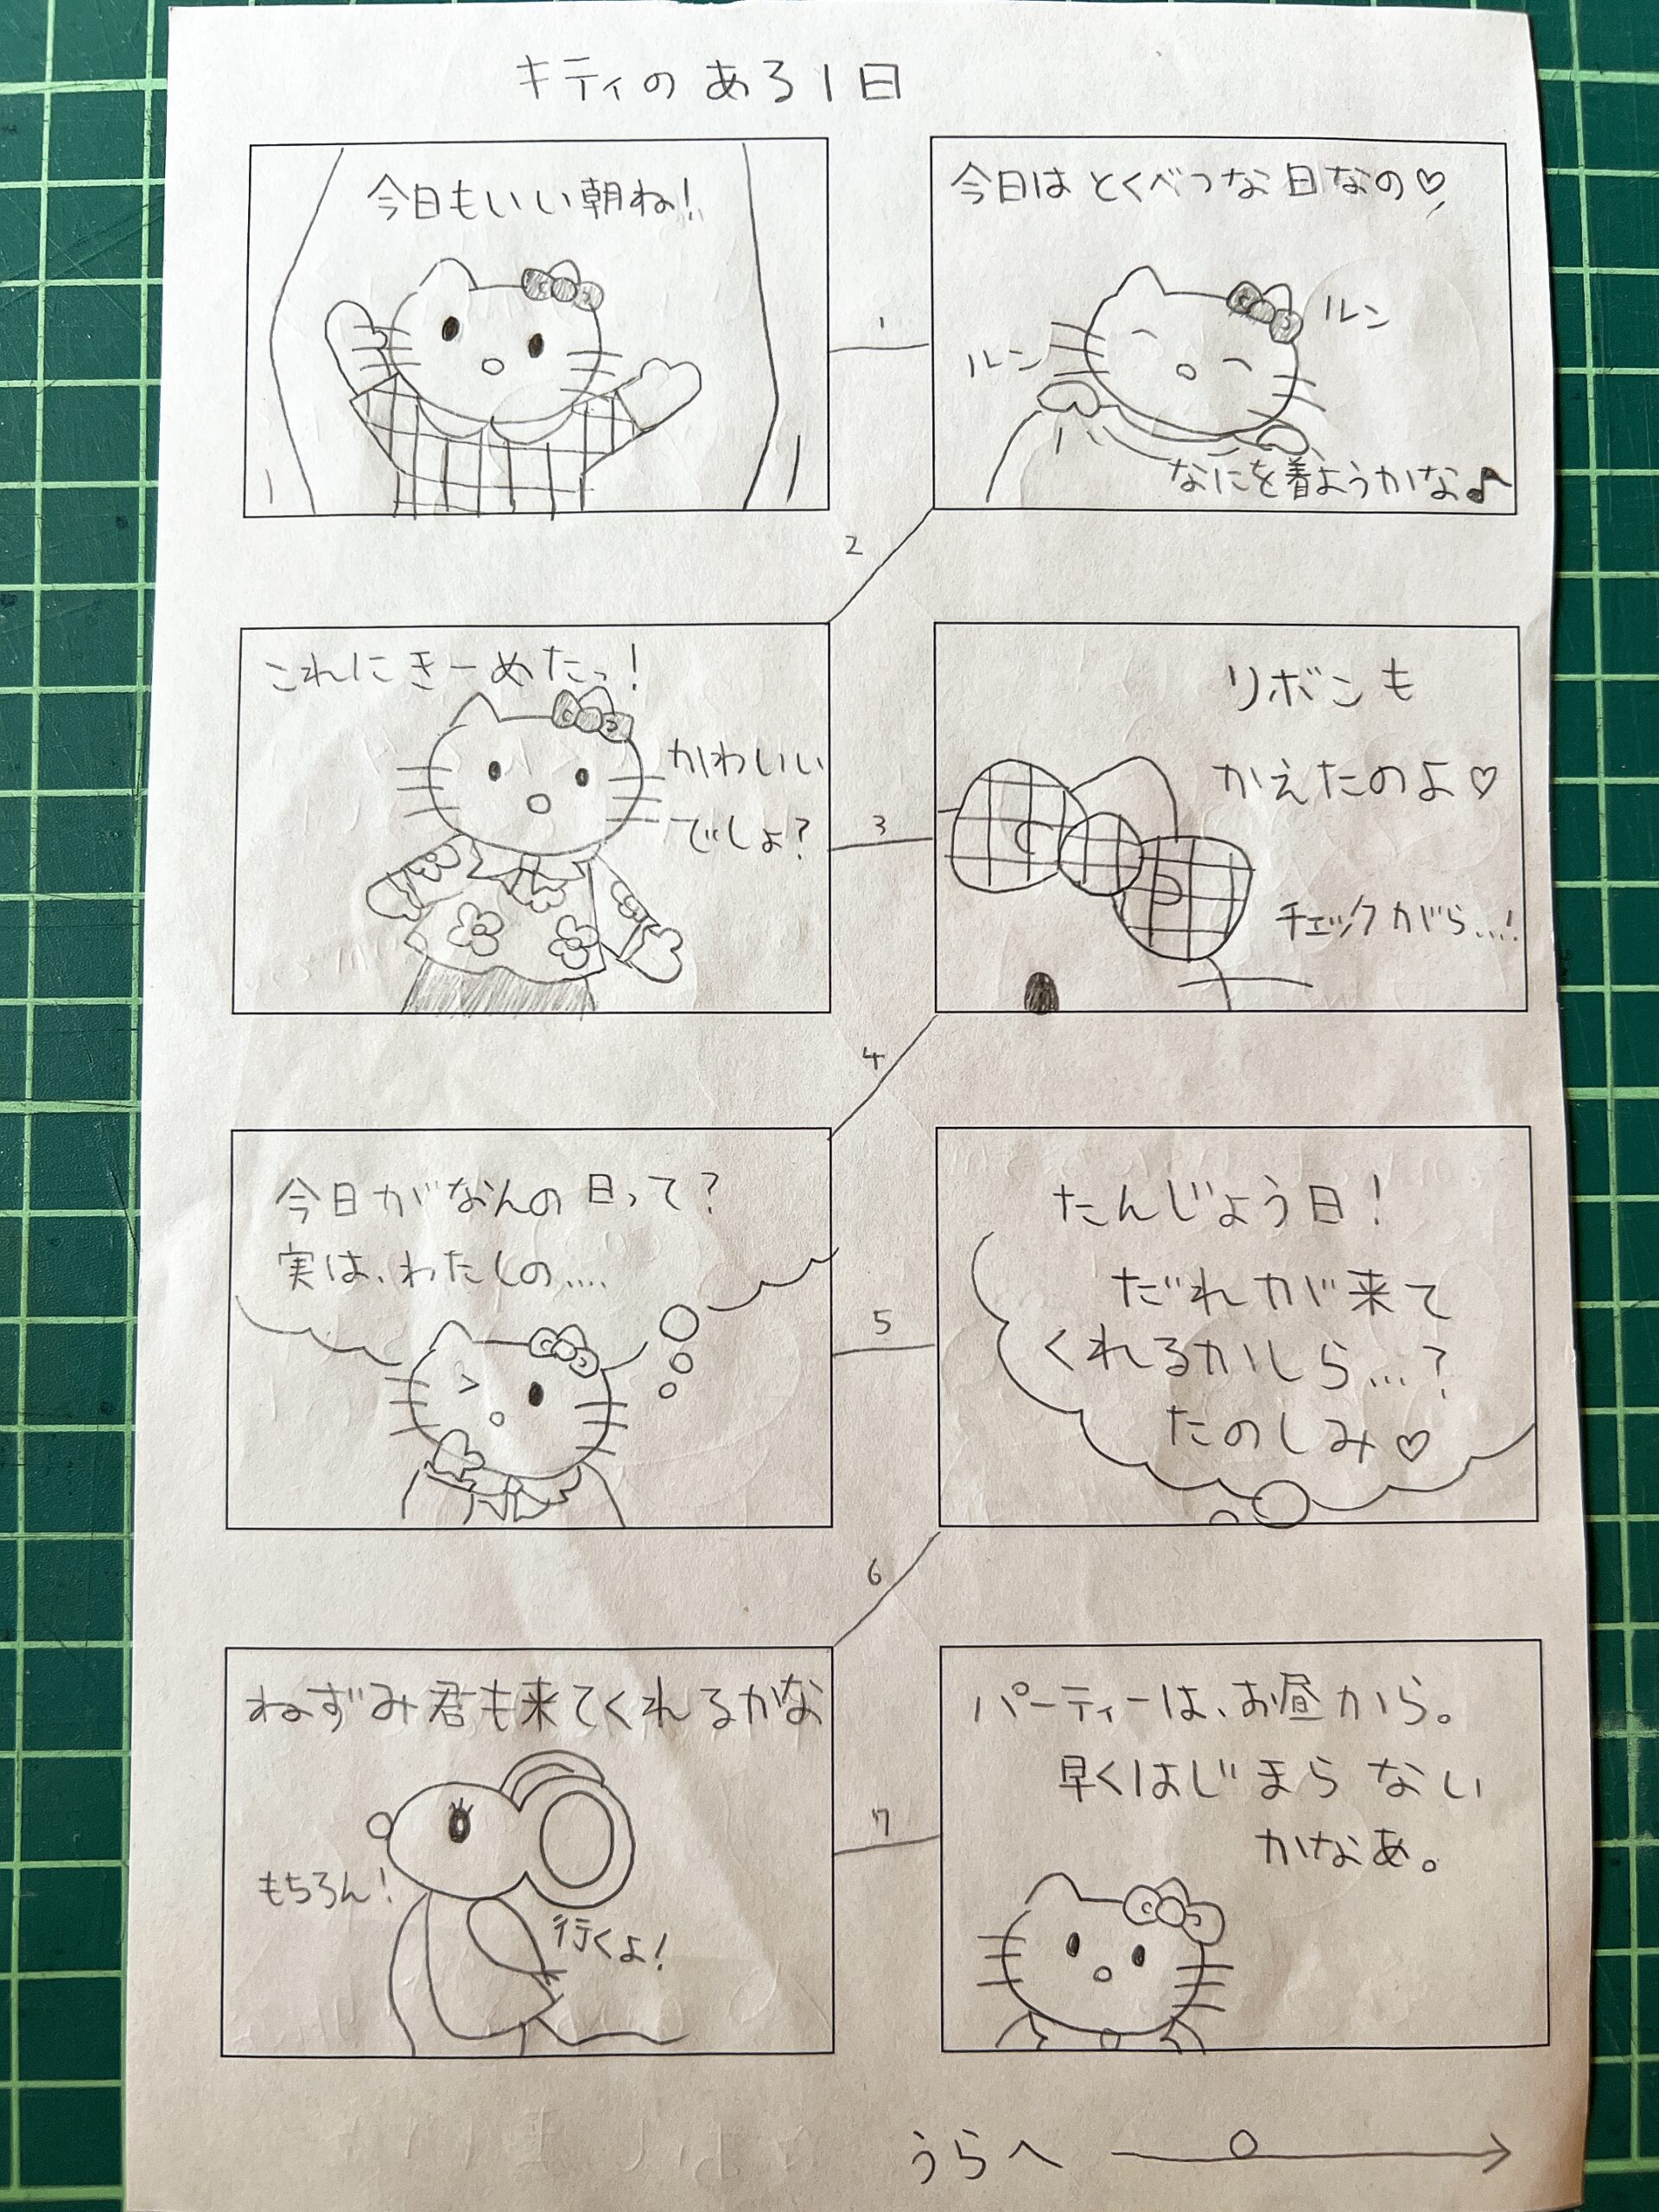 キティのある1日
今日もいい朝ね!
1
今日はとくべつな日なの♡
ルン
ルン
なにを着ようかな♪
2
これにきーめたっ!
かわいい
でしょ?
3
リボンも
かえたのよ♡
チェックがら...!
4
今日がなんの日って?
実は、わたしの....
5
たんじょう日!
だれが来て
くれるかしら...?
たのしみ♡
6
ねずみ君も来てくれるかな
もちろん!
行くよ!
7
パーティーは、お昼から。
早くはじまらない
かなあ。
うらへ